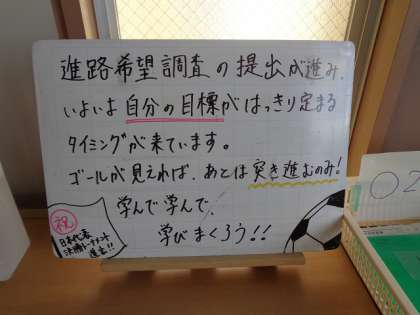 進路希望調査の提出が進み、
いよいよ自分の目標がはっきり定まる
タイミングが来ています。
ゴールが見えれば、あとは突き進むのみ!
学んで学んで、
学びまくろう!!
祝
日本代表
決勝トーナメント
進出!!
02